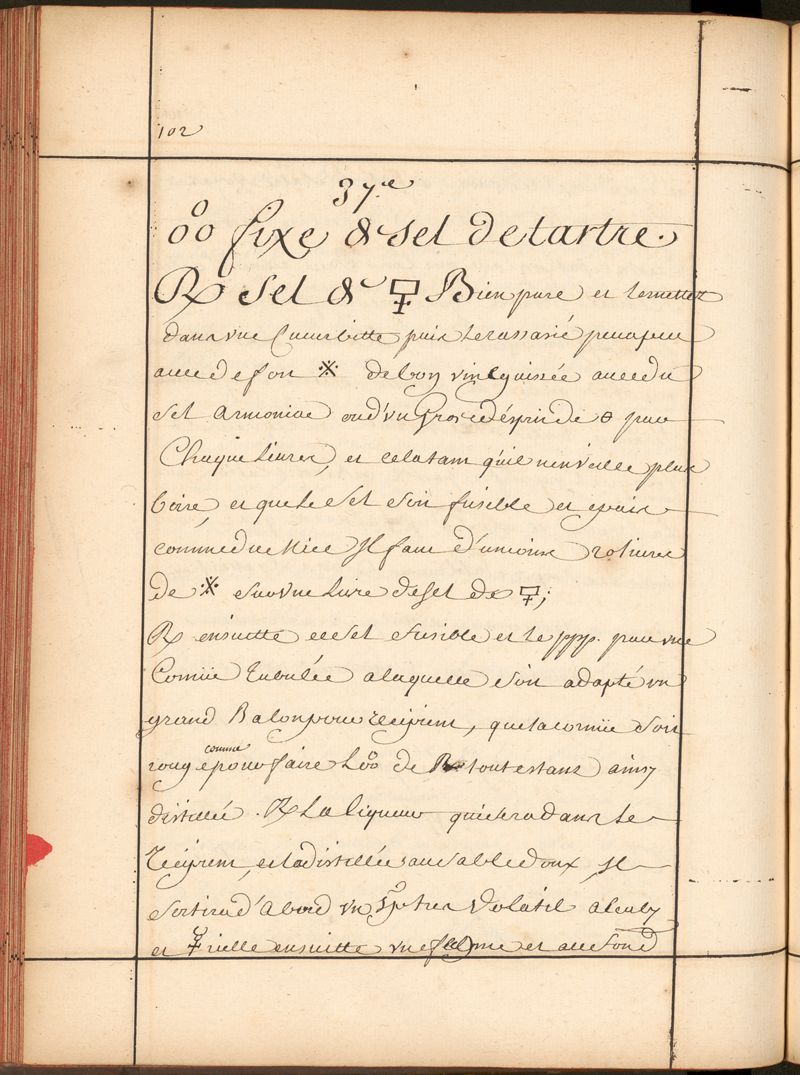 102
37.e
fixe & sel de tartre.
℞ Sel de Bien pure et le mettez
dans une Cucurbitte puis le rassasié peu a peu
avec de son de bon vin eguisée avec du
Sel Armoniac ou d'un Gros d'esprit de pour
Chaque Livres, et cela tant qu'il n'en veille plus
boire, et que le Sel soit fusible et epais
comme du Miel Il faut d'umoins 20 livres
de ※ sur une Livre de sel de
℞ ensuitte ce Sel fusible et le ppp. par une
Cornüe Tubulée a laquelle soit adapté un
grand Balon pour recipient, que la cornüe soit
rouge comme pour faire L de tout estant ainsy
distillée. ℞ La liqueur qui sera dans le
recipient, et la distillée au sable doux, Il
sortira d'Abord un tres Volatil alcaly
et rielle ensuitte une flegme et au fond